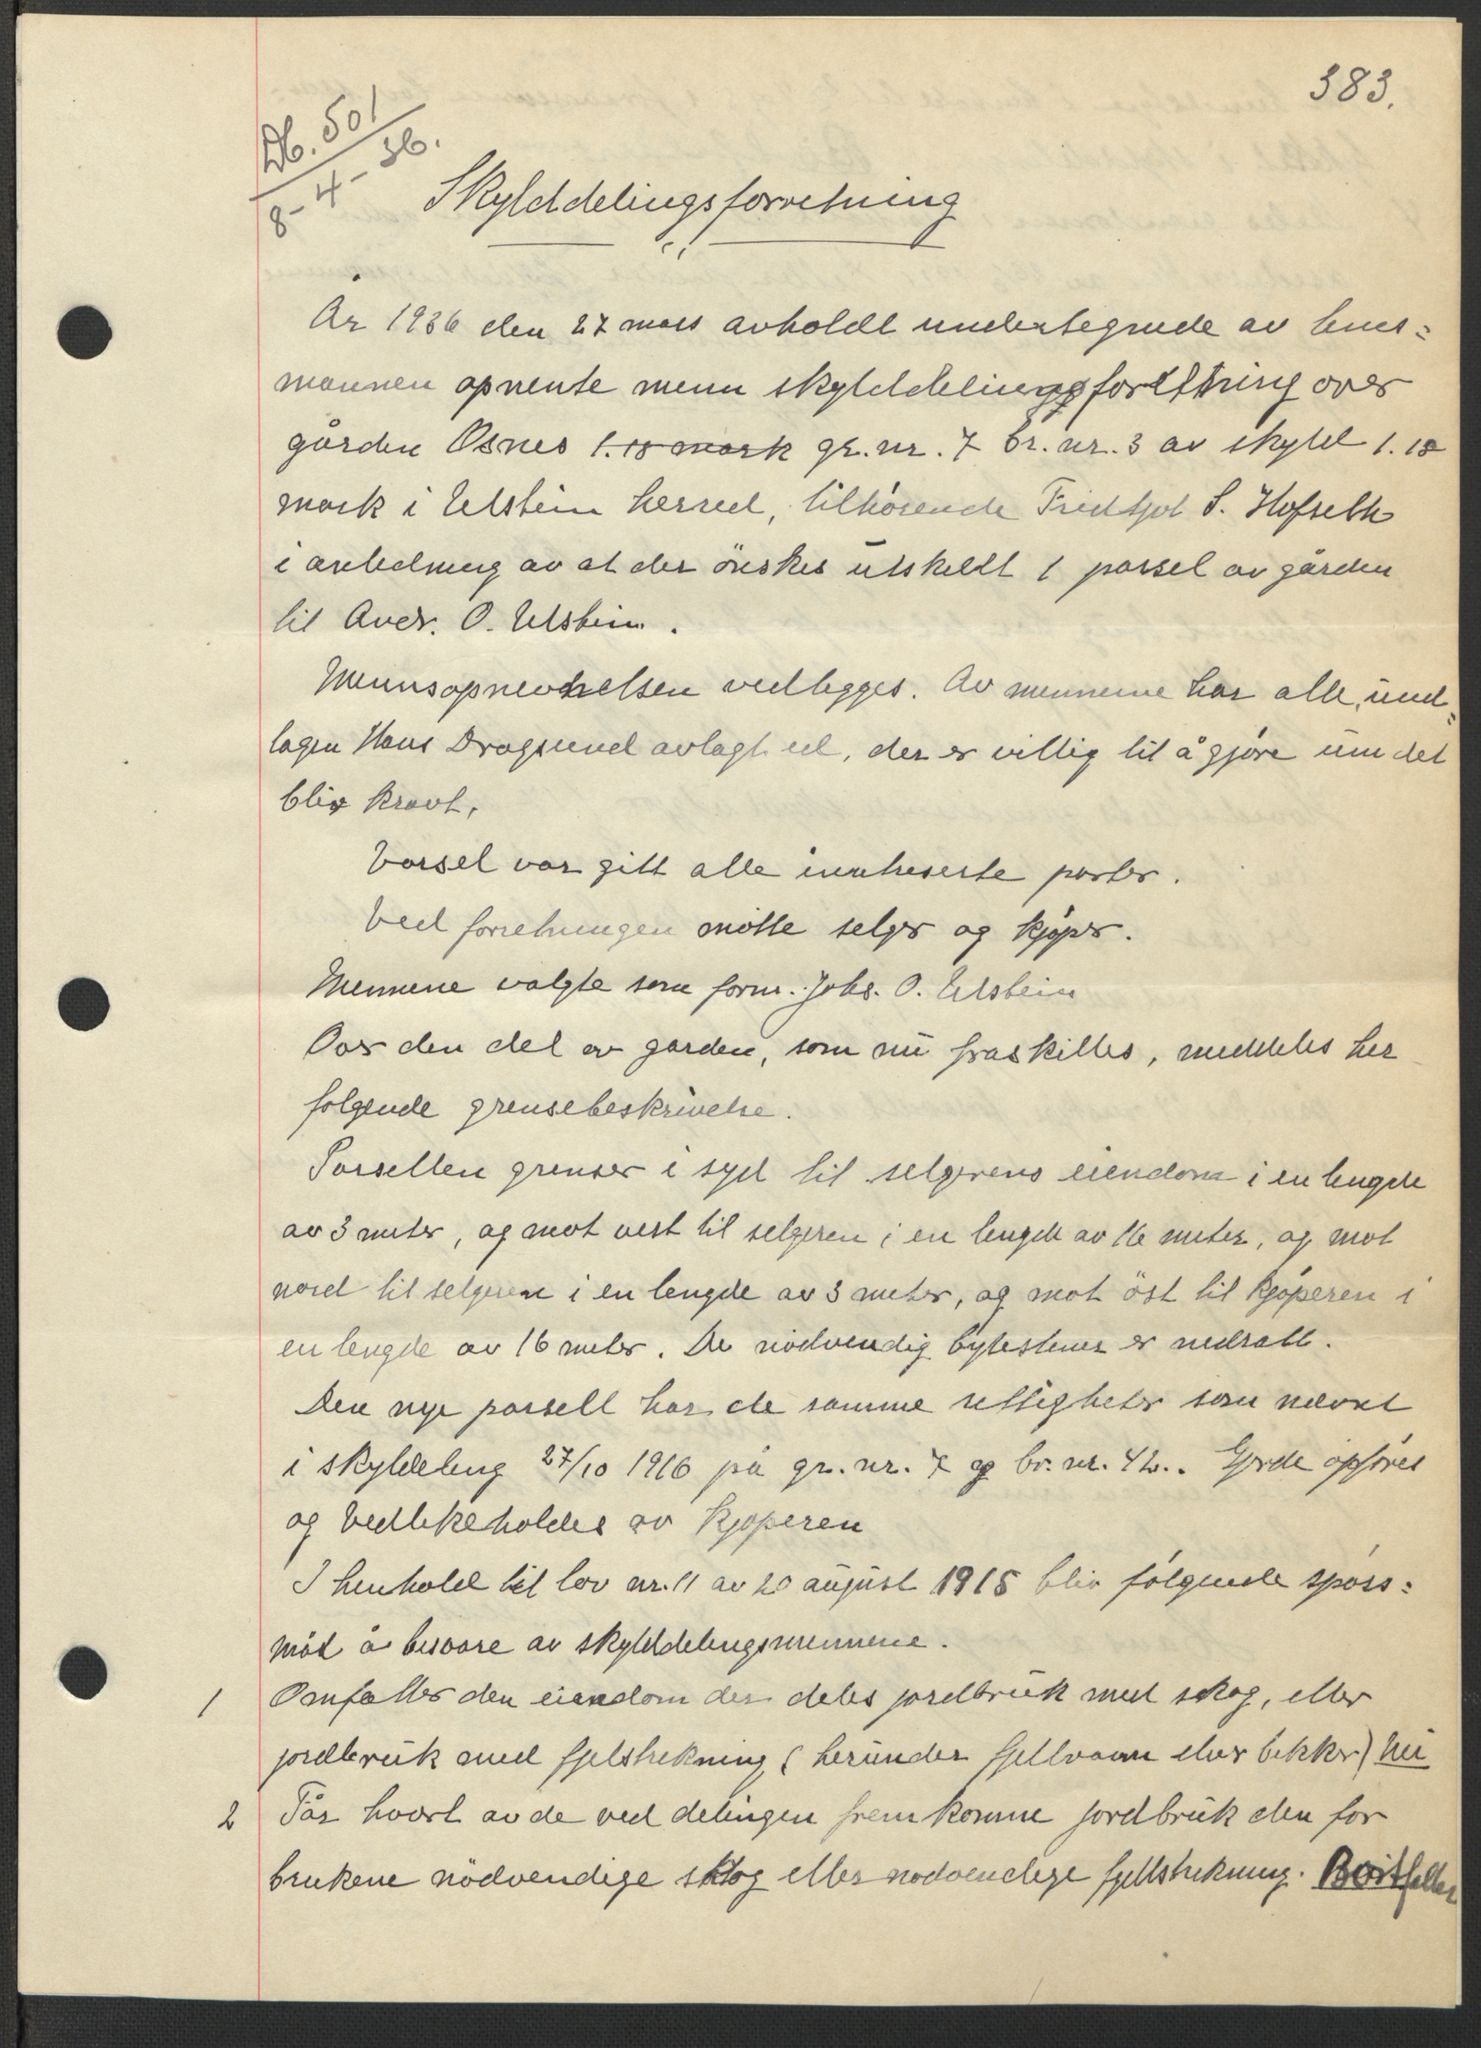 383.
Db. 501
8-4-36.
Skylddelingsforretning
År 1936 den 27 mars avholdt undertegnede av lens=
mannen opnente menn skylddelingsforretning over
gården Osnes 1.18 mark gr.nr. 7 br.nr. 3 av skyld 1.18
mark i Ulstein herred, tilhörende Fridtjof S. Hofseth
i anledning av at der önskes utskildt 1 parsel av gården
til Andr. O. Ulstein.
Mennsopnevnelsen vedlegges. Av mennene har alle, und=
tagen Hans Dragsund avlagt ed, der er villig til å gjöre um det
blir krevt.
Varsel var gitt alle inntreserte parter.
Ved forretningen mötte selger og kjöper.
Mennene valgte som form. Johs. O. Ulstein
Over den del av garden, som nu fraskilles, meddeles her
fölgende grensebeskrivelse.
Parsellen grenser i syd til selgerens eiendom i en lengde
av 3 meter, og mot vest til selgeren i en lengde av 16 meter, og mot
nord til selgeren i en lengde av 3 meter, og mot öst til kjöperen i
en lengde av 16 meter. De nödvendig bytestener er nedsatt.
Den nye parsell har de samme rettigheter som nevnt
i skylddeling 27/10 1916 på gr.nr. 7 og br.nr. 42.. Gjerde opföres
og vedlikeholdes av kjöperen
I henhold til lov nr. 11 av 20 august 1915 blir fölgende spörs=
mål å besvare av skylddelingsmennene.
1 Omfatter den eiendom der deles jordbruk med skog, eller
jordbruk med fjelstrekning (herunder fjellvann elver bekker) Nei
2 Får hvert av de ved delingen fremkomne jordbruk den for
brukene nödvendige skog eller nodvendige fjellstrekning. Bortfaller